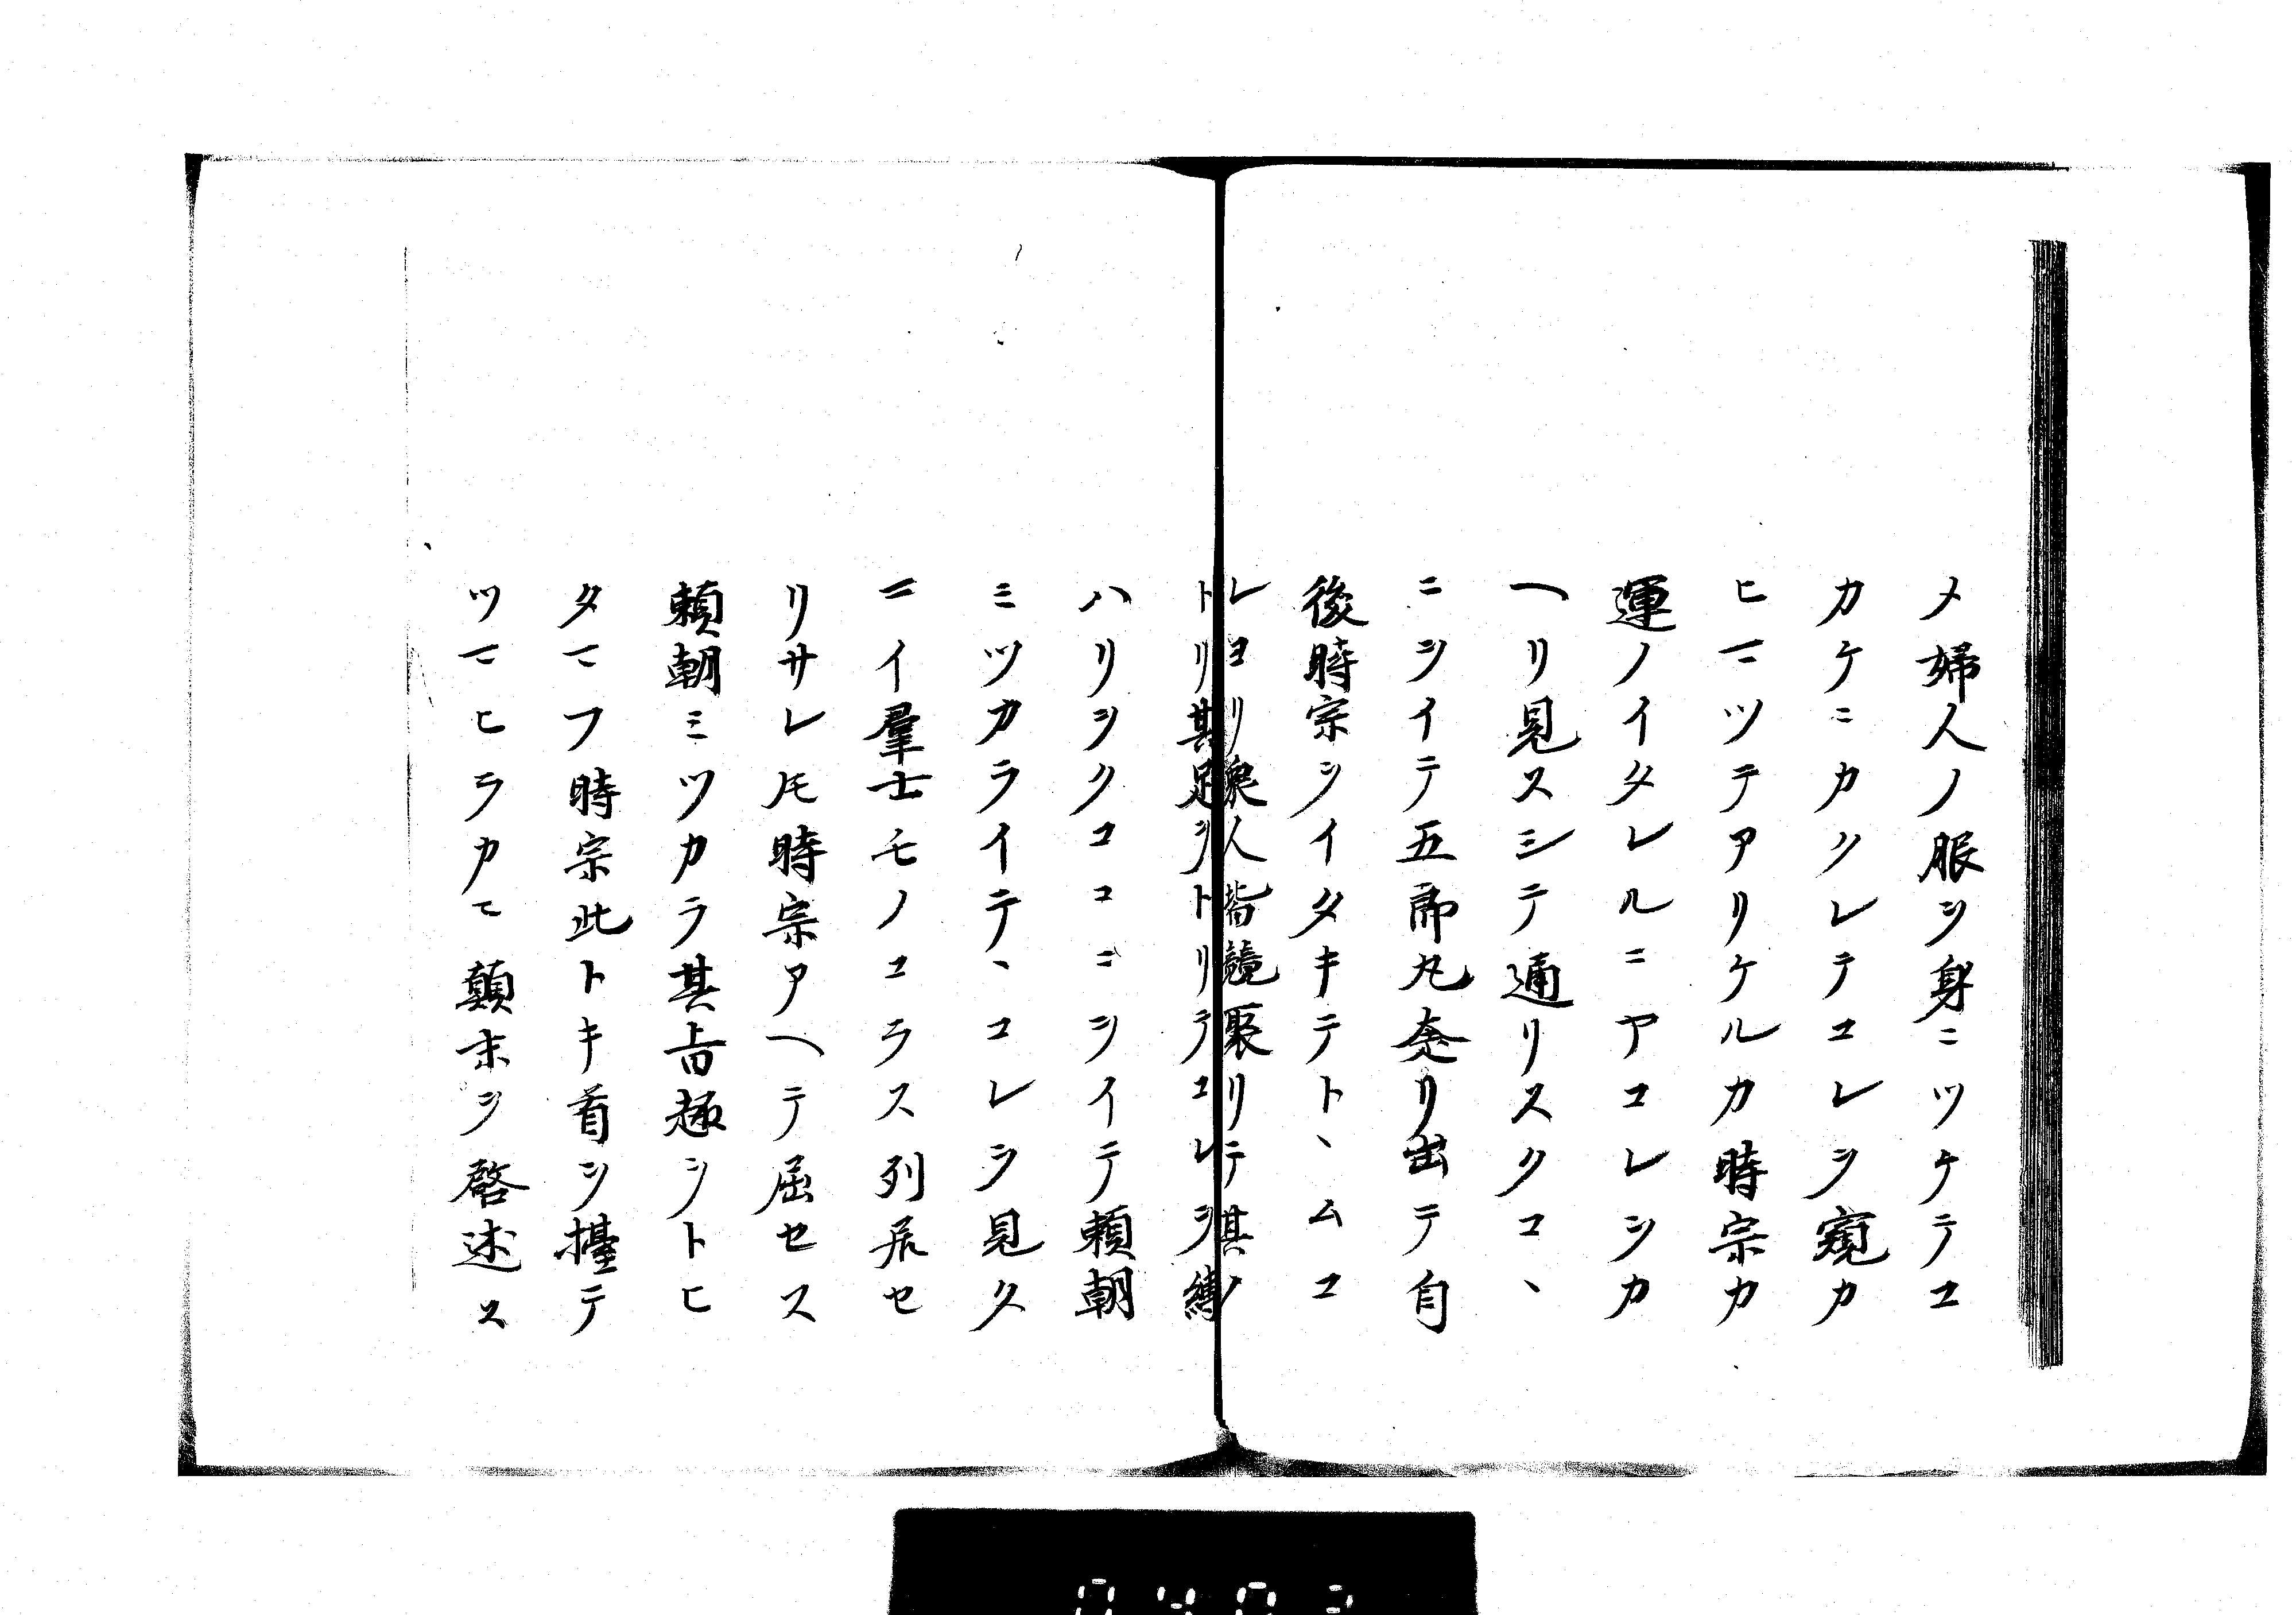 メ婦人ノ服ヲ身ニツケテコ
カケニカクレテコレヲ窺カ
ヒマツテアリケルカ時宗カ
運ノイタレルニヤコレヲカ
ヘリ見スシテ通リスクコヽ
ニヲイテ五郎丸奔リ出テ自
後時宗ヲイタキテトヽムコ
レヨリ衆人皆競聚リテ其ノ
トリ其足ヲトリテコレヲ縛
ハリヲクココニヲイテ頼朝
ミツカライテヽコレヲ見タ
マイ羣士モノコラス列居セ
リサレ𪜈時宗アヘテ屈セス
頼朝ミツカラ其旨趣ヲトヒ
タマフ時宗此トキ首ヲ擡テ
ツマヒラカニ顛末ヲ啓述ス